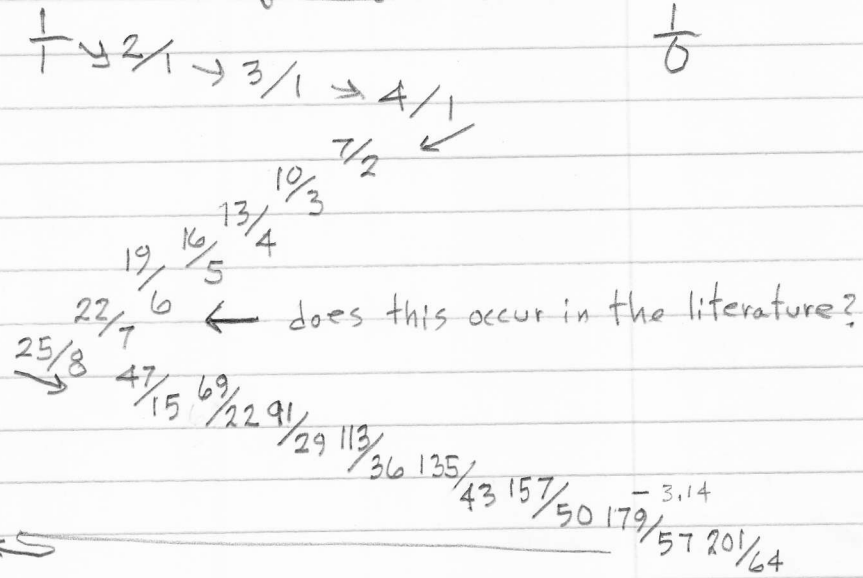 1/1 ↘ 2/1 → 3/1 → 4/1 1/0
7/2 ↙
10/3
13/4
16/5
19/6
22/7 ← does this occur in the literature?
25/8
→ 47/15 69/22 91/29 113/36 135/43 157/50 - 3.14
179/57 201/64